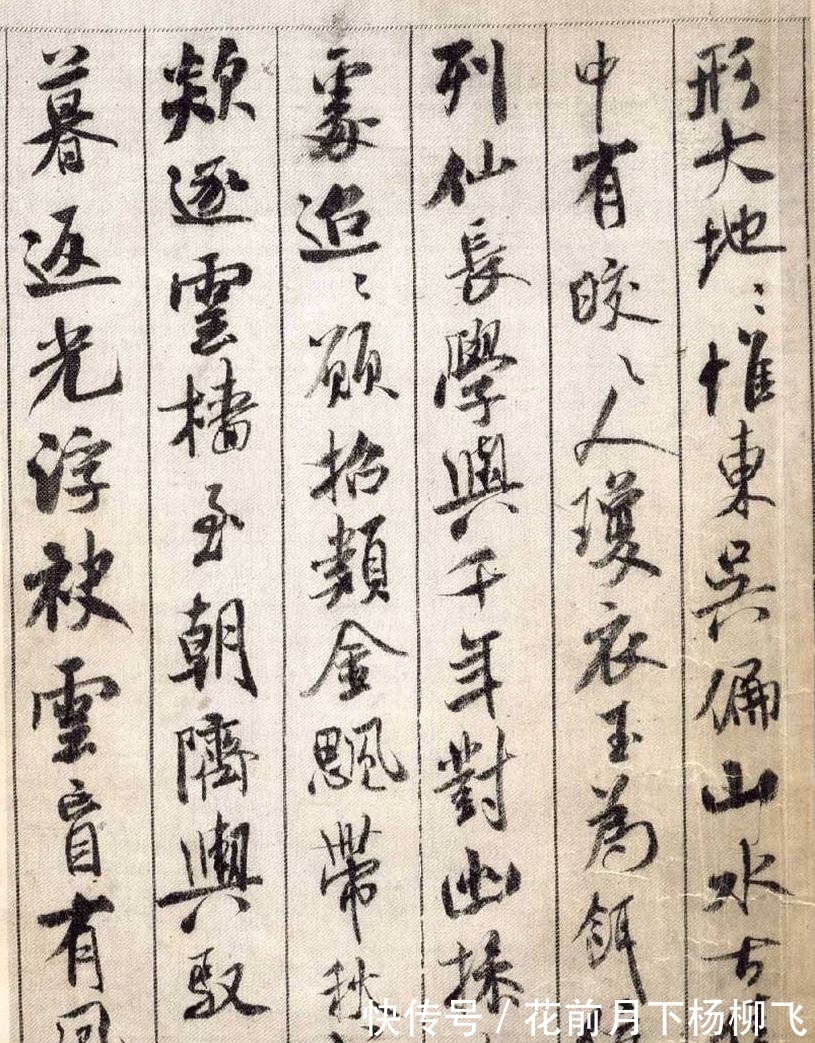 形大地〻惟東吳偏山水古
中有皎〻人瓊衣玉為餌
列仙長學與千年對幽操
處迢〻願招類金颸帶秋
欻逐雲檣至朝隮輿馭
暮返光浮袂雲盲有風
快传号 / 花前月下杨柳飞